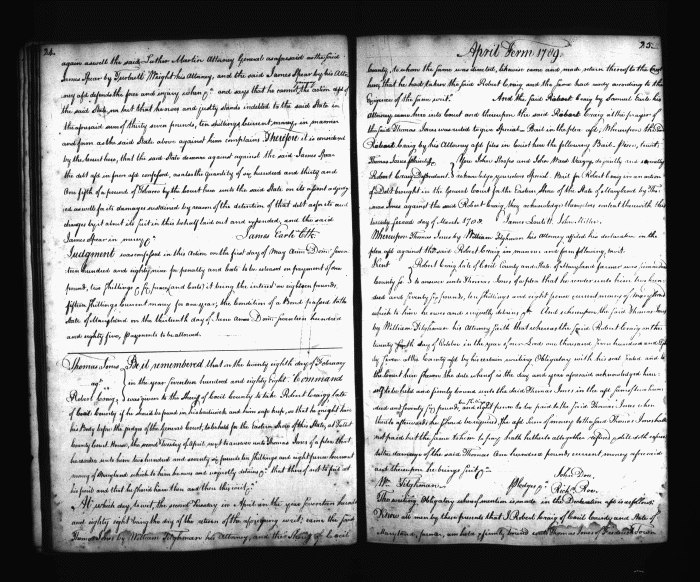 24.
again aswell the said Luther Martin Attorney General as aforesaid as the said
James Spear by Turbutt Wright his Attorney, and the said James Spear by his Atto
ney afd defends the force and injury when &c. and says that he cannot the action afd of
the said State, nor but that he owes and justly stands indebted to the said State in
the aforesaid sum of thirty seven pounds, ten shillings, current money, in manner
and form as the said State above against him complains. Therefore it is considered
by the court here, that the said State recover against the said James Spear
the debt afd in form afd confessed, as also the quantity of six hundred and thirty and
One fifth of a pound of Tobacco by the court here unto the said State on its assent adjudg
ed aswell for its damages sustained by reason of the detention of that debt as for its costs and
charges by it about its suit in this behalf laid out and expended, and the said
James Spear in mercy &c.
James Earle Clk
Judgment was confessed in this Action on the first day of May Anno Domi seven
teen hundred and eighty nine for penalty and costs to be released on payment of nine
pounds, ten shillings & six pence and costs; it being the interest on eighteen pounds,
fifteen shillings current money for one year; the condition of a Bond passed to the
State of Maryland on the thirteenth day of June Anno Domi seventeen hundred
and eighty five, payments to be allowed.
Thomas Jones Be it remembered that on the twenty eighth day of February
agt in the year seventeen hundred and eighty eight Command
Robert Craig was given to the Sheriff of Cecil County to take Robert Craig late
of Cecil County if he should be found in his bailiwick and him safe keep, so that he might have
his Body before the judges of the General Court, to be held for the Eastern shore of this State, at Talbot
County Court House, the second Tuesday of April next to answer unto Thomas Jones of a plea that
he render unto him two hundred and seventy six pounds ten Shillings and eight pence current
money of Maryland which to him he owes and unjustly detains &c. and that thereof not to fail at
his peril and that he should have then and there this writ &c.
At which day, to wit, the second Tuesday in April in the year seventeen hundred
and eighty eight being the day of the return of the aforegoing writ; came the said
Thomas Jones by William Tilghman his Attorney, and the Sheriff of Cecil
April Term 1789.
25.
County, to whom the same was directed, likewise came and made return thereof to the Court
here, that he hath taken the said Robert Craig and the same hath ready according to the
Exigence of the same writ. And the said Robert Craig by Samuel Earle his
Attorney came into Court and thereupon the said Robert Craig at the prayer of
the said Thomas Jones was ruled to give Special Bail in the plea afd; Whereupon the said
Robert Craig by his Attorney afd files in Court here the following Bail-piece, to wit;
Thomas Jones Plaintiff You John Sharpe and John Ward Veazey do jointly and severally
Robert Craig Defendant. acknowledge yourselves Special Bail for Robert Craig in an action
of Debt brought in the General Court for the Eastern Shore of the State of Maryland by Tho
mas Jones against the said Robert Craig, they acknowledge themselves content therewith this
twenty second day of March 1789.
Whereupon Thomas Jones by William Tilghman his Attorney afd filed his declaration in the
plea afd against the said Robert Craig in manner and form following, to wit;
Kent Robert Craig late of Cecil County and State of Maryland farmer was summoned
County Ss to answer unto Thomas Jones of a plea that he render unto him two hun
dred and seventy six pounds, ten shillings and eight pence current money of Maryland
which to him he owes and unjustly detains &c. And whereupon the said Thomas Jones
by William Tilghman his Attorney saith that whereas the said Robert Craig on the
day of October in the year of our Lord one thousand seven hundred and eigh
ty seven at the county afd by his certain writing Obligatory with his seal sealed and to
the Court here shewn the date whereof is the day and year aforesaid acknowledged him
self to be held and firmly bound unto the said Thomas Jones in the afd sum of two hun
dred and seventy six pounds, and eight pence to be paid to the said Thomas Jones when
he should thereafter be required. The afd sum of money to the said Thomas Jones hath
not paid but the same to him to pay hath hitherto altogether refused & still doth refuse
to the damage of the said Thomas One hundred pounds, current money aforesaid
and thereupon he brings suit &c.
Wm Tilghman Pledges &c. John Doe,
Richd Roe.
The writing Obligatory whereof mention is made in the Declaration afd is as follows:
Know all men by these presents that I Robert Craig of Cecil County and State of
Maryland, farmer, am held & firmly bound unto Thomas Jones of Frederick Town